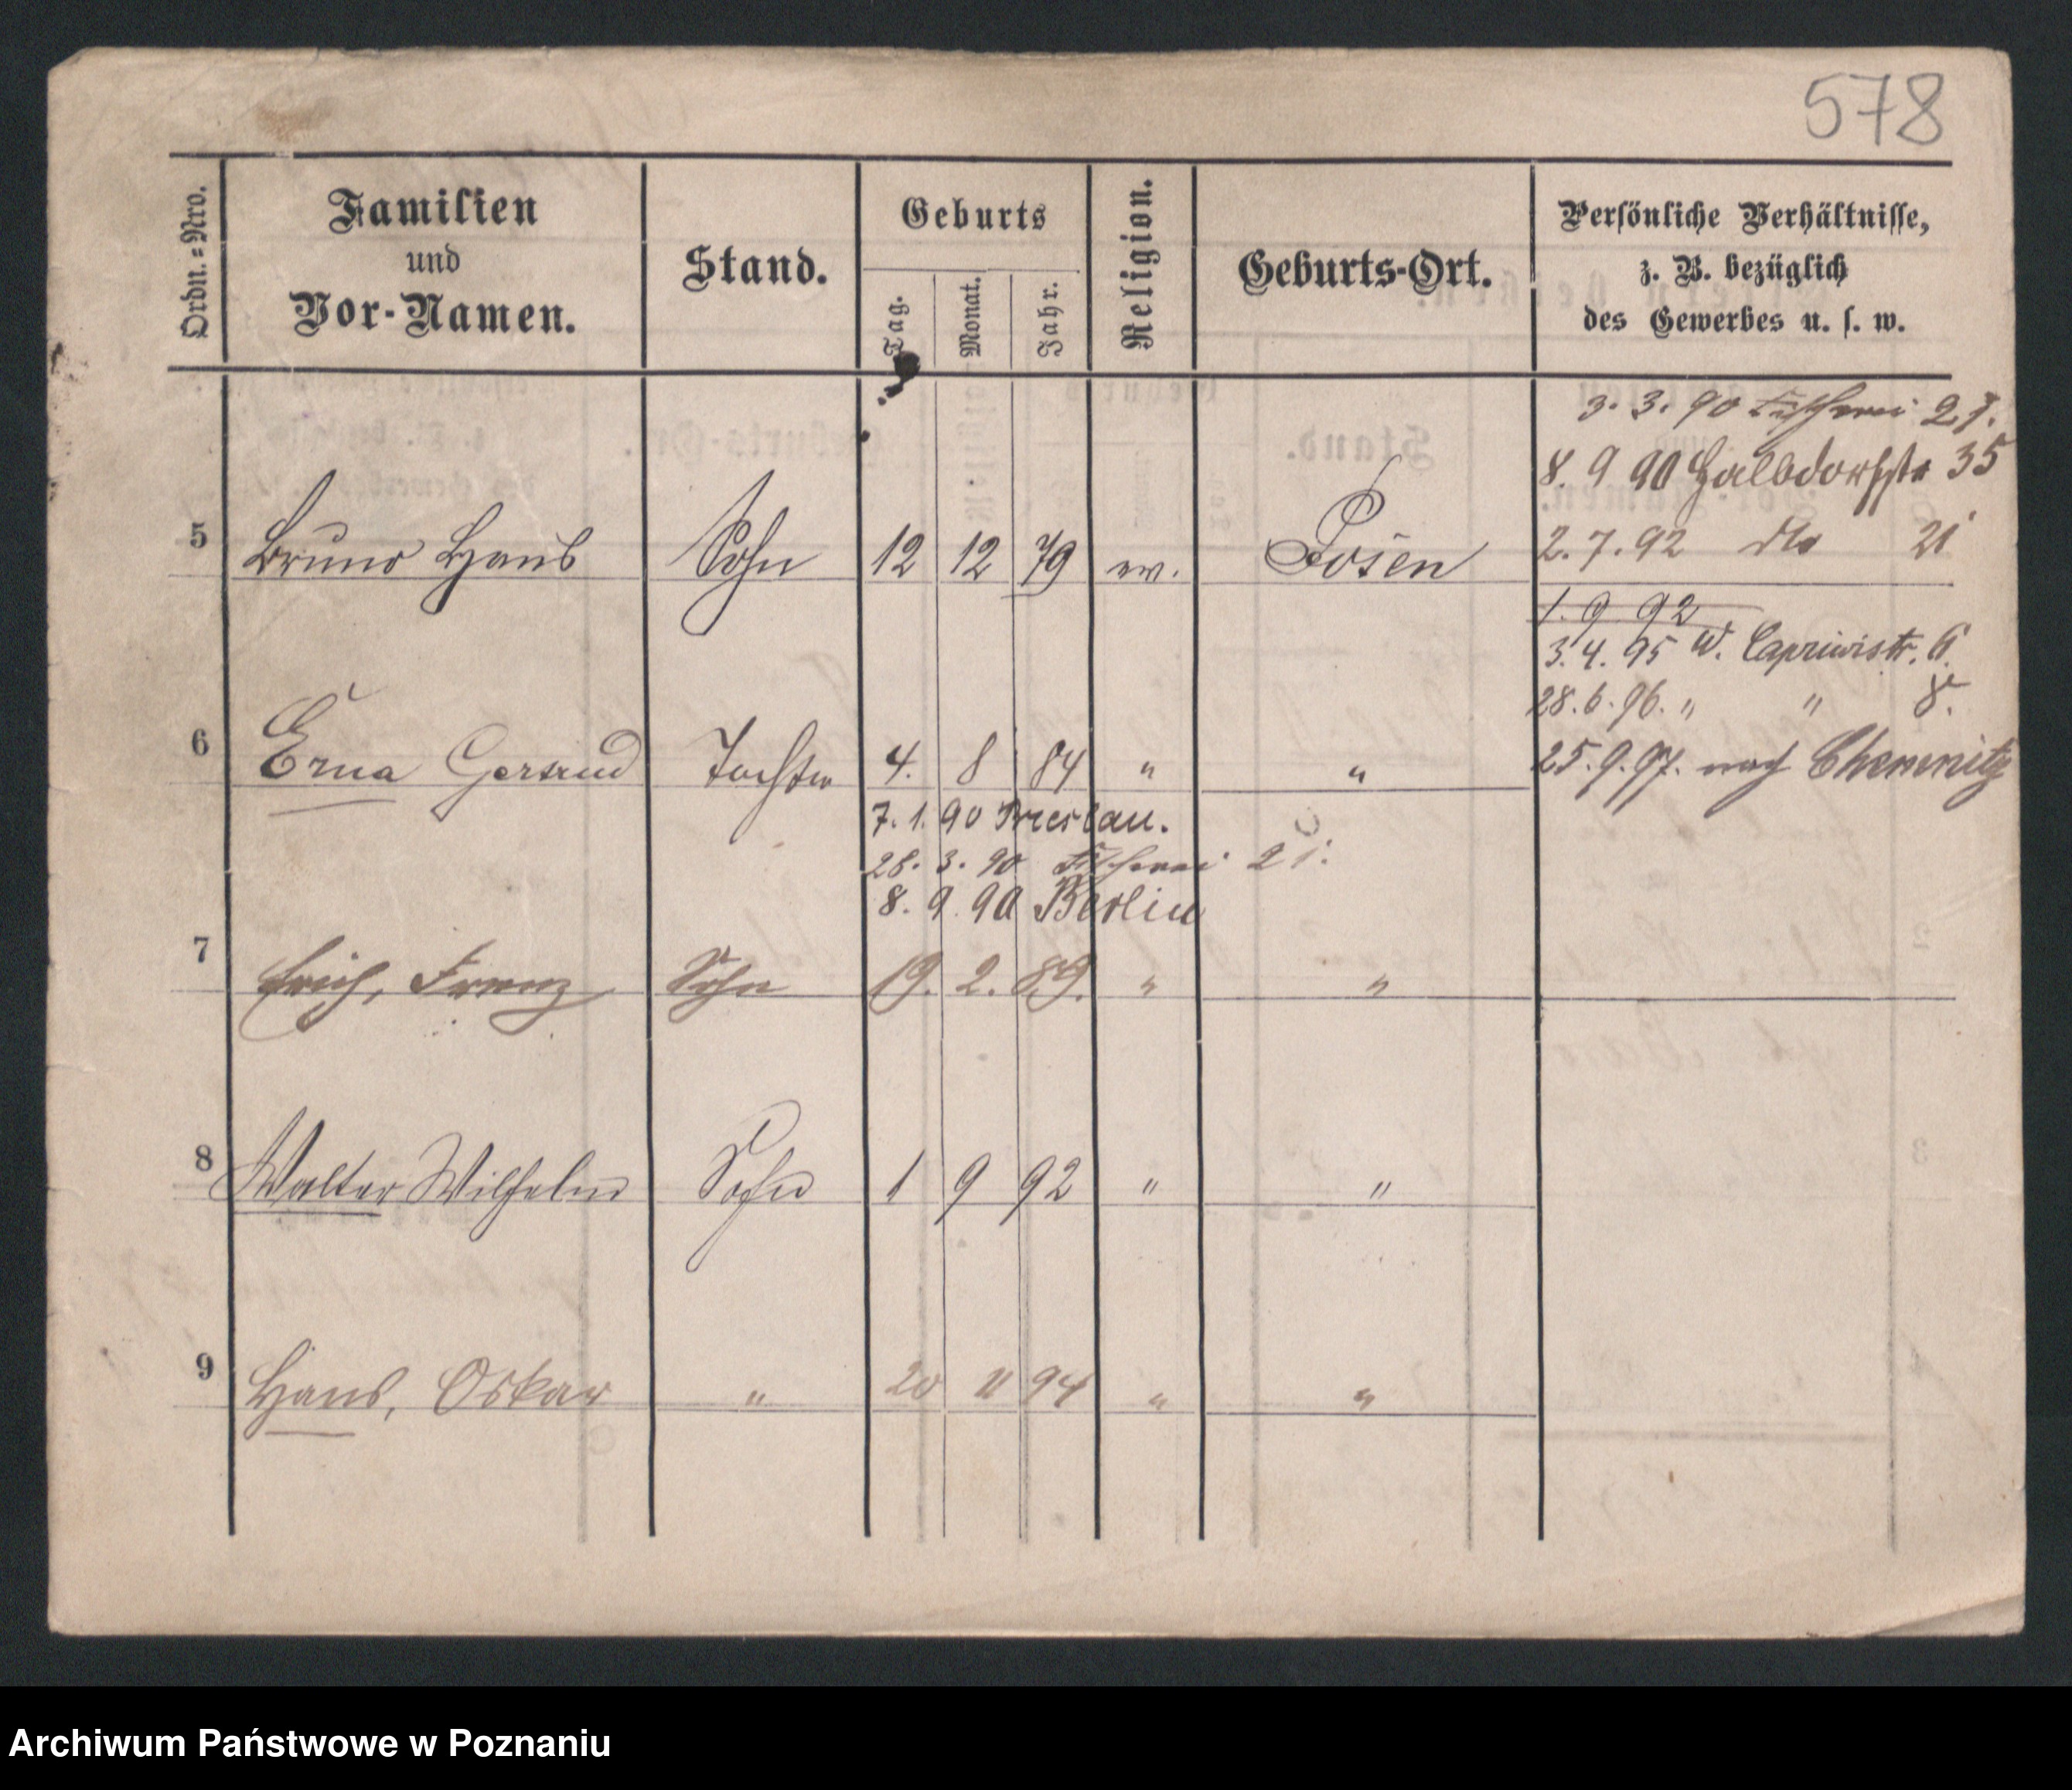 578
Ordn.=Nro.
Familien
und
Vor-Namen.
Stand.
Geburts
Tag.
Monat.
Jahr.
Religion.
Geburts-Ort.
Persönliche Verhältnisse,
z. B. bezüglich
des Gewerbes u. s. w.
3. 3. 90 Fischerei 21.
8. 9 90 Halbdorfstr 35
5 Bruno Hans Sohn 12 12 79 ev. Posen 2. 7. 92 dto 21
1. 9 92
3. 4. 95 W. Caprivistr. 6.
28. 6. 96. " " 8.
6 Erna Gertrud Tochter 4. 8 84 " " 25. 9. 97. nach Chemnitz
7. 1. 90 Breslau.
28. 3. 90 Fischerei 21.
8. 9. 90 Berlin
7 Erich, Franz Sohn 19. 2. 89. " "
8 Walter Wilhelm Sohn 1 9 92 " "
9 Hans, Oskar " 20 11 94 " "
Archiwum Państwowe w Poznaniu